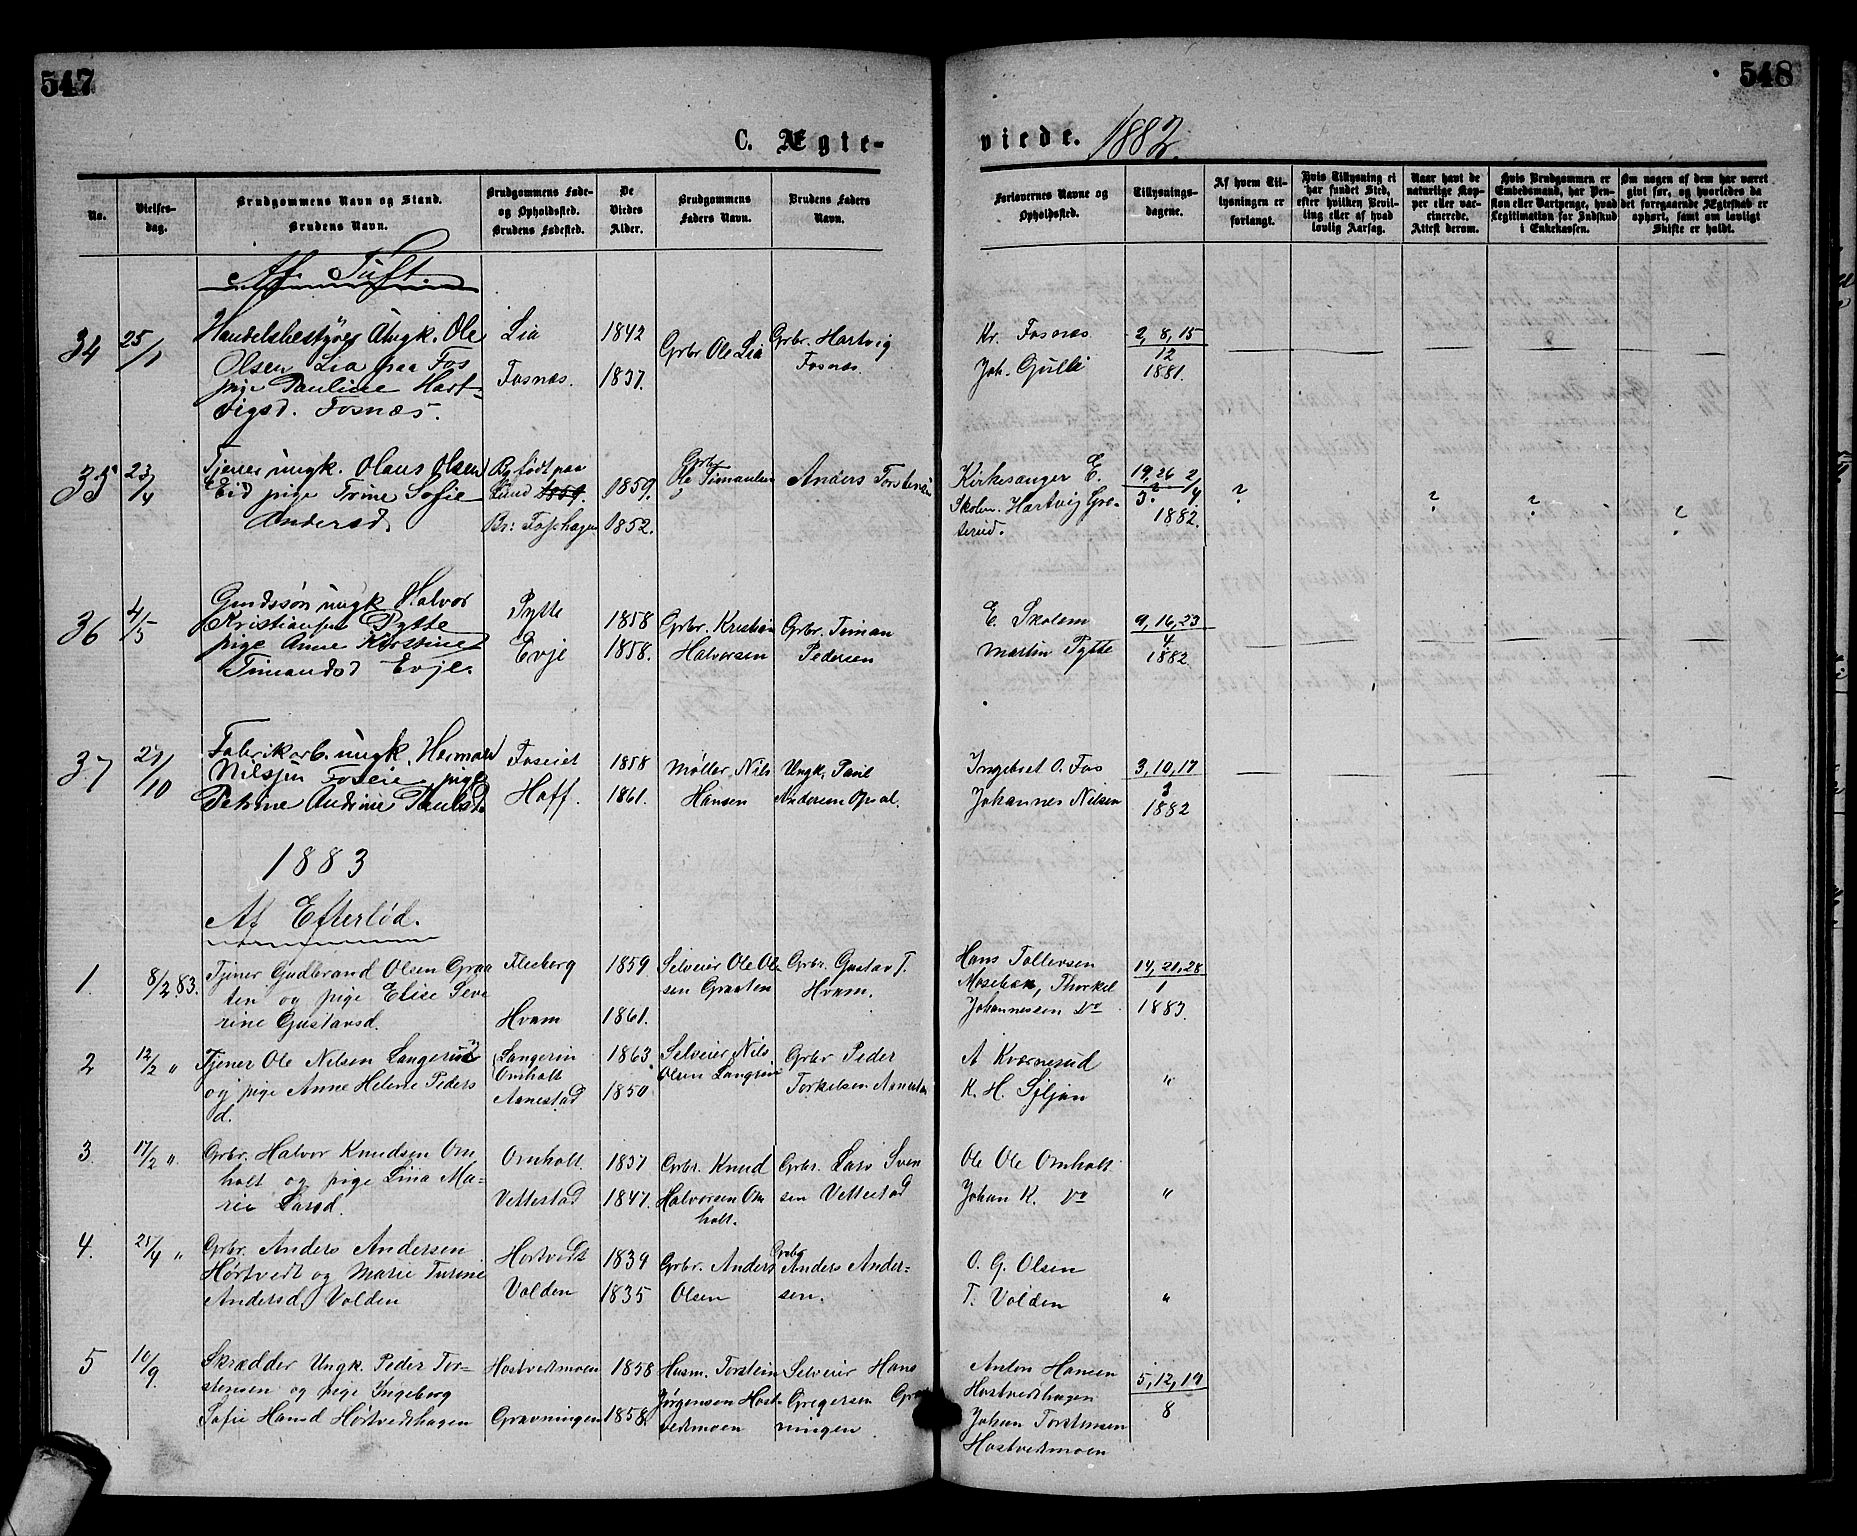 547
548
C. Ægte-
viede. 1882.
No.
Vielses-
dag.
Brudgommens Navn og Stand.
Brudens Navn.
Brudgommens Føde-
og Opholdssted.
Brudens Fødested.
De
Viedes
Alder.
Brudgommens
Faders Navn.
Brudens Faders
Navn.
Forlovernes Navne og
Opholdssted.
Tillysnings-
dagene.
Af hvem Til-
lysningen er
forlangt.
Hvis Tillysning ei
har fundet Sted,
efter hvilken Bevil-
ling eller af hvad
lovlig Aarsag.
Naar havt de
naturlige Kop-
per eller vac-
cinerede.
Attest derom.
Hvis Brudgommen er
Embedsmand, har Pen-
sion eller Vartpenge, hvad
Legitimation for Indskud
i Enkekassen.
Om nogen af dem har været
gift før, og hvorledes da
det foregaaende Ægteskab er
ophørt, samt om lovligt
Skifte er holdt.
Af Tuft.
34 25/1 Handelsbestyrer Ungk. Ole
Olsen Lia paa Fos
pige Pauline Hart-
vigsd. Fosnæs.
Lia 1842
Fosnæs. 1837.
Grbr Ole Lia
Grbr. Hartvig
Fosnæs.
Kr. Fosnæs
Joh. Gulli
2, 8, 15
12
1881.
35 23/4 Tjener ungk. Olaus Olsen
Eid pige Trine Sofie
Andersd.
Bg født paa
Lund 1859. 1859.
Br: Foshagen 1852.
Grbr
Ole Timansen
Anders Torstensen
Kirkesanger E.
Skolm. Hartvig Gro-
terud.
19, 26 2/4
3
1882.
? ? ? ?
36 4/5 Gaardssøn ungk Halvor
Kristiansen Pytte
pige Anne Kirstine
Timandsd Evje.
Pytte 1858
Evje 1858.
Grbr. Kristian
Halvorsen
Grbr. Timan
Pedersen
E. Skolem
Martin Pytte
9, 16, 23
4
1882
37 27/10 Fabrikarb. ungk. Herman
Nilssen Foseie pige
Petrine Andrine Paulsd
Foseiet 1858
Hoff. 1861.
Møller, Nils
Hansen
Ungk. Paul
Andersen Opsal.
Ingebret O. Fos
Johannes Nilsen
3, 10, 17
1882
1883
Af Efterlød.
1. 8/2 83. Tjener Gudbrand Olsen Graa
ten og pige Elise Seve
rine Gustavsd.
Flesberg 1859
Hvam 1861.
Selveier Ole Ol-
sen Graaten
Grbr. Gustav T.
Hvam.
Hans Tollefsen
Moseboen, Thorkel
Johannessen do
14, 21, 28
1
1883.
2 12/2 " Tjener Ole Nilsen Langerud
og pige Anne Helene Peders
d.
Langerin
Omholt 1863
Aanestad 1850
Selveier Nils
Olsen Langerin
Grbr Peder
Torkelsen Aanestad
A Kværnerud
K. H. Siljan
"
3. 17/2 " Grbr. Halvor Knudsen Om
holt og pige Lina Ma-
rie Larsd.
Omholt 1857
Vettestad 1847.
Grbr. Knud
Halvorsen Om
holt.
Grbr. Lars Sven
sen Vettestad
Ole Ole Omholt
Johan K. do
"
4. 25/4 " Grbr. Anders Andersen
Hørtvedt og Marie Turine
Andersd. Volden
Hørtvedt 1839
Volden 1835
Grbr. Anders
Olsen
Grbr
Anders Ander-
sen.
O. G. Olsen
T. Volden
"
5 16/9 Skrædder Ungk. Peder Tor-
stensen og pige Ingeborg
Sofie Hansd Hørtvedthagen
Hostvedtmoen 1858
Gravningen 1858
Husm. Torstein
Jørgensen Host-
vedmoen
Selveier Hans
Gregersen Grav
ningen
Anton Hansen
Hostvedthagen
Johan Torstensen
Hostvedmoen
5, 12, 19
8